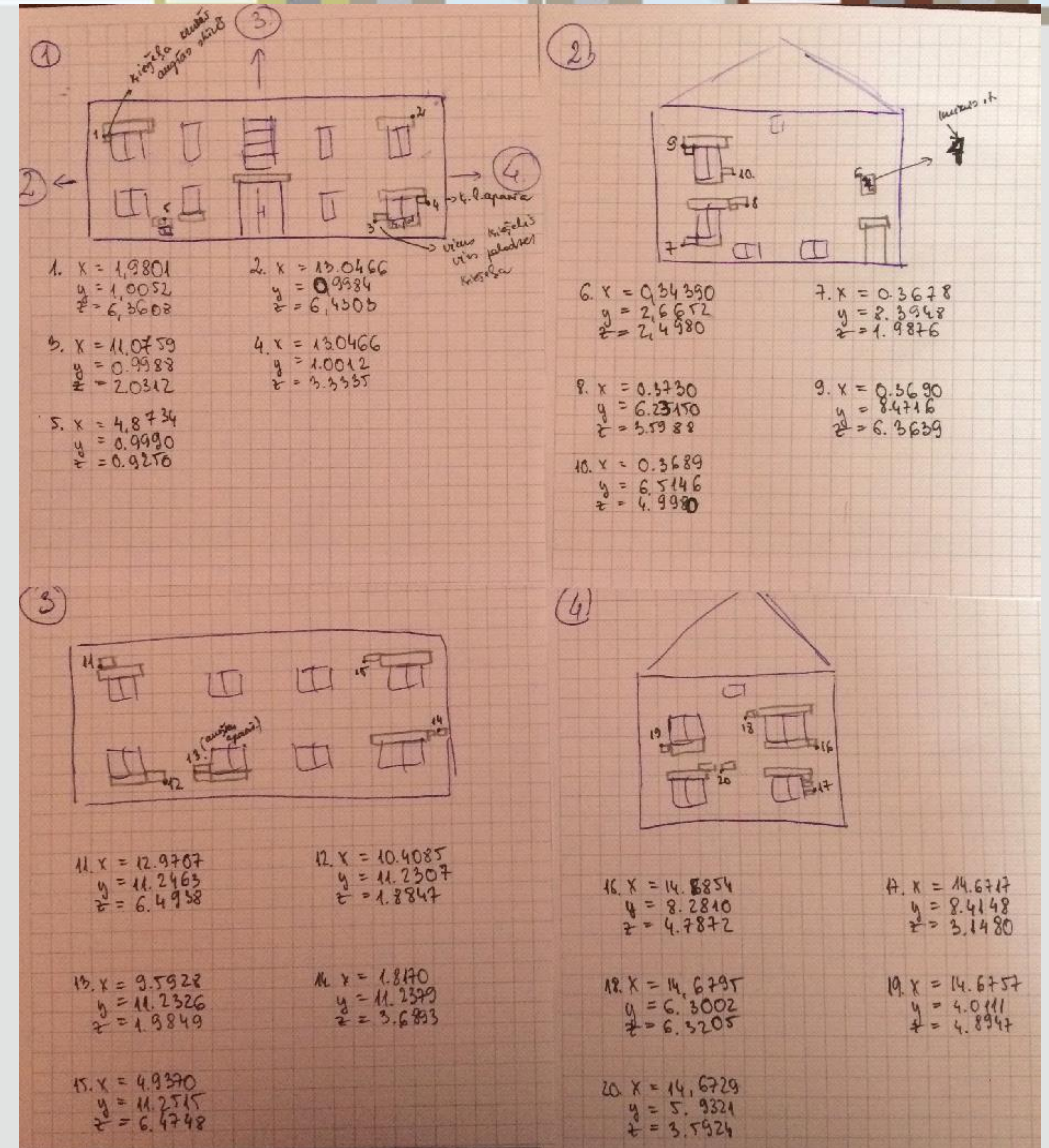 1
3
ķieģeļa
augšas stūris
1
2
2
4
5
3
4
→ ķ. l. apakša
viens ķieģelis
virs palodzes
ķieģeļa
1. x = 1,9801
y = 1,0052
z = 6,3608
2. x = 13.0466
y = 0,9984
z = 6,4303
3. x = 11.0759
y = 0.9988
z = 2.0312
4. x = 13.0466
y = 1.0012
z = 3.3335
5. x = 4,8734
y = 0.9990
z = 0.9250
2.
9
10
8
7
6
6. x = 0,34390
y = 2,6652
z = 2,4980
7. x = 0.3678
y = 8.3948
z = 1.9876
8. x = 0.3730
y = 6.25150
z = 3.5988
9. x = 0.3690
y = 8.4716
z = 6.3639
10. x = 0.3689
y = 6.5146
z = 4.9980
3
11
15
13.
14
12
11. x = 12.9707
y = 11.2463
z = 6.4938
12. x = 10.4085
y = 11.2307
z = 1.8847
13. x = 9.5928
y = 11.2326
z = 1.9849
14. x = 1.8170
y = 11.2379
z = 3.6893
15. x = 4.9370
y = 11.2515
z = 6.4748
4
19
18
16
20
17
16. x = 14.6854
y = 8.2810
z = 4.7872
17. x = 14.6717
y = 8.4148
z = 3.1480
18. x = 14,6795
y = 6.3002
z = 6.3205
19. x = 14.6757
y = 4.0111
z = 4.8947
20. x = 14,6729
y = 5.9321
z = 3.5924